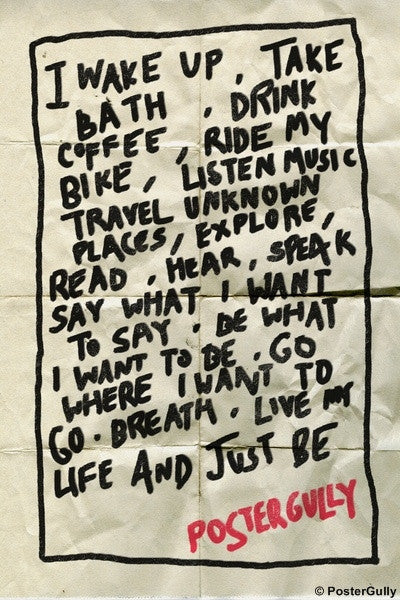 I WAKE UP, TAKE
BATH, DRINK
COFFEE, RIDE MY
BIKE, LISTEN MUSIC
TRAVEL UNKNOWN
PLACES, EXPLORE,
READ, HEAR, SPEAK
SAY WHAT I WANT
TO SAY. BE WHAT
I WANT TO BE. GO
WHERE I WANT TO
GO. BREATH. LIVE MY
LIFE AND JUST BE
POSTERGULLY
© PosterGully